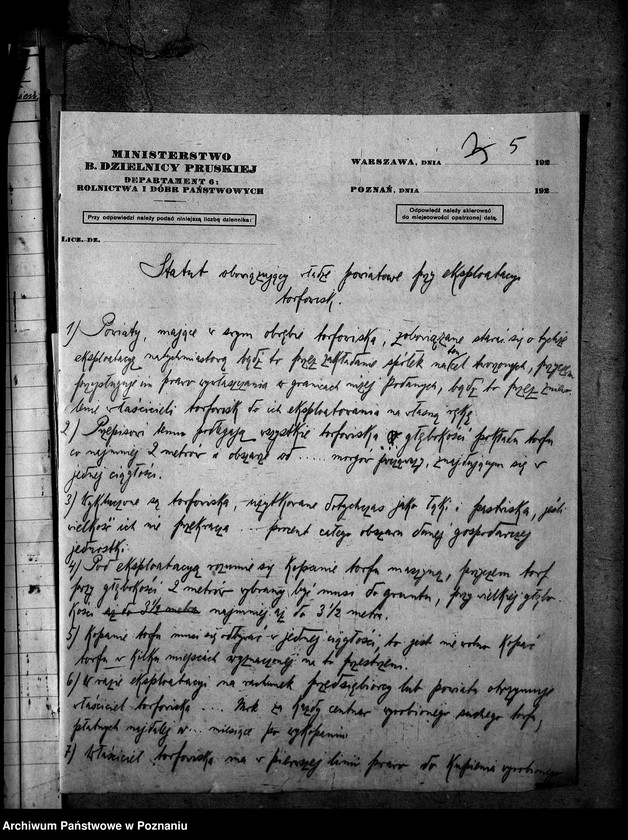 MINISTERSTWO
B. DZIELNICY PRUSKIEJ
DEPARTAMENT 6:
ROLNICTWA I DÓBR PAŃSTWOWYCH
WARSZAWA, DNIA 5 192
POZNAŃ, DNIA 192
Przy odpowiedzi należy podać niniejszą liczbę dziennika!
Odpowiedź należy skierować
do miejscowości opatrzonej datą.
LICZ. DZ.
Statut obowiązujący władze powiatowe przy eksploatacji
torfowisk.
1) Powiaty, mające w swym obrębie torfowiska, zobowiązane starać się o tychże
eksploatację natychmiastową bądź to przez zakładanie spółek na cel ten tworzonych, przyczem
przysługuje im prawo wywłaszczania w granicach niżej podanych, bądź to przez zniewo-
lenie właścicieli torfowisk do ich eksploatowania na własną rękę.
2) Przepisowi temu podlegają wszystkie torfowiska o głębokości pokładu torfu
co najmniej 2 metrów a obszarze od ..... morgów, znajdującym się w
jednej ciągłości.
3) Wykluczone są torfowiska, użytkowane dotychczas jako łąki i pastwiska, jeśli
wielkość ich nie przekracza .... procent całego obszaru danej gospodarczej
jednostki.
4) Pod eksploatacją rozumie się kopanie torfu maszyną, przyczem torf
przy głębokości 2 metrów wybrany być musi do gruntu, przy większej głębo-
kości najmniej aż do 3 1/2 metr.
5) Kopanie torfu musi się odbywać w jednej ciągłości, to jest nie wolno kopać
torfu w kilku miejscach wyznaczonej na to przestrzeni.
6) W razie eksploatacji na rachunek przedsiębiorcy lub powiatu otrzymuje
właściciel torfowiska .... Mrk za każdy centnar wyrobionego suchego torfu,
płatnych najdalej w .... miesiące po wykopaniu
7) Właściciel torfowiska ma w pierwszej linii prawo do kupienia wyrobionego
Archiwum Państwowe w Poznaniu